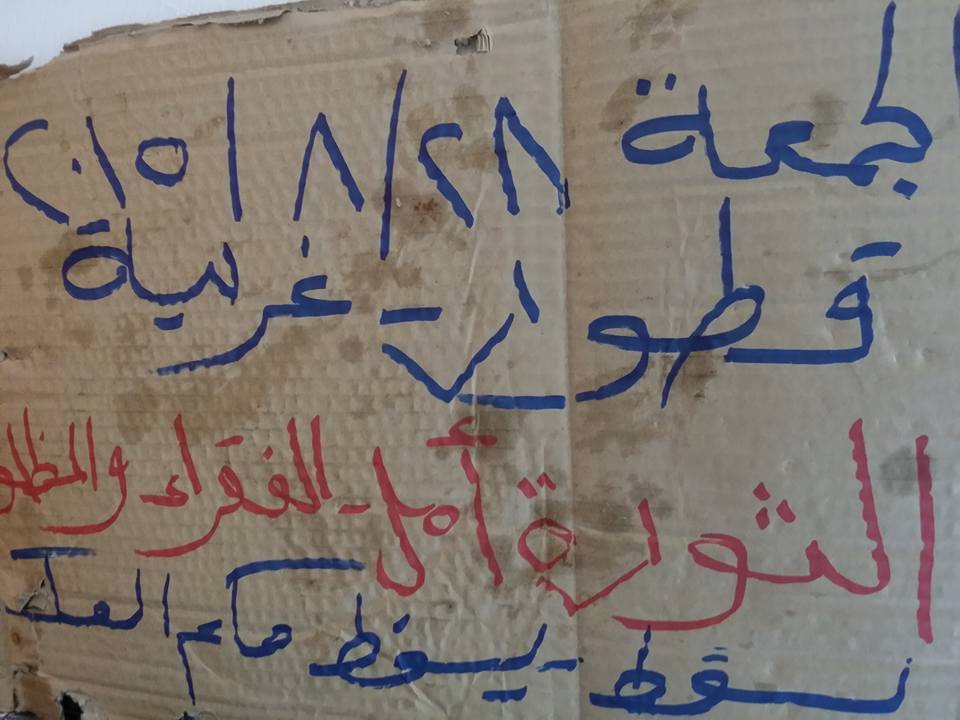 الجمعة ٢٨/٨/٢٠١٥
قطور - غربية
الثورة أمل - الفقراء والمظلو
يسقط - يسقط حكم العسك